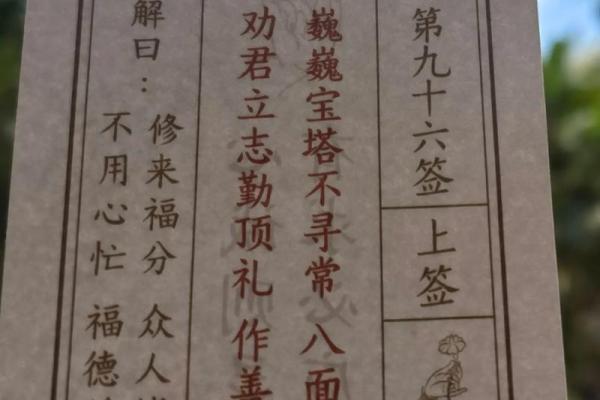 第九十六签
上签
巍巍宝塔不寻常 八面
劝君立志勤顶礼 作善
解曰：
修来福分 众人
不用心忙 福德